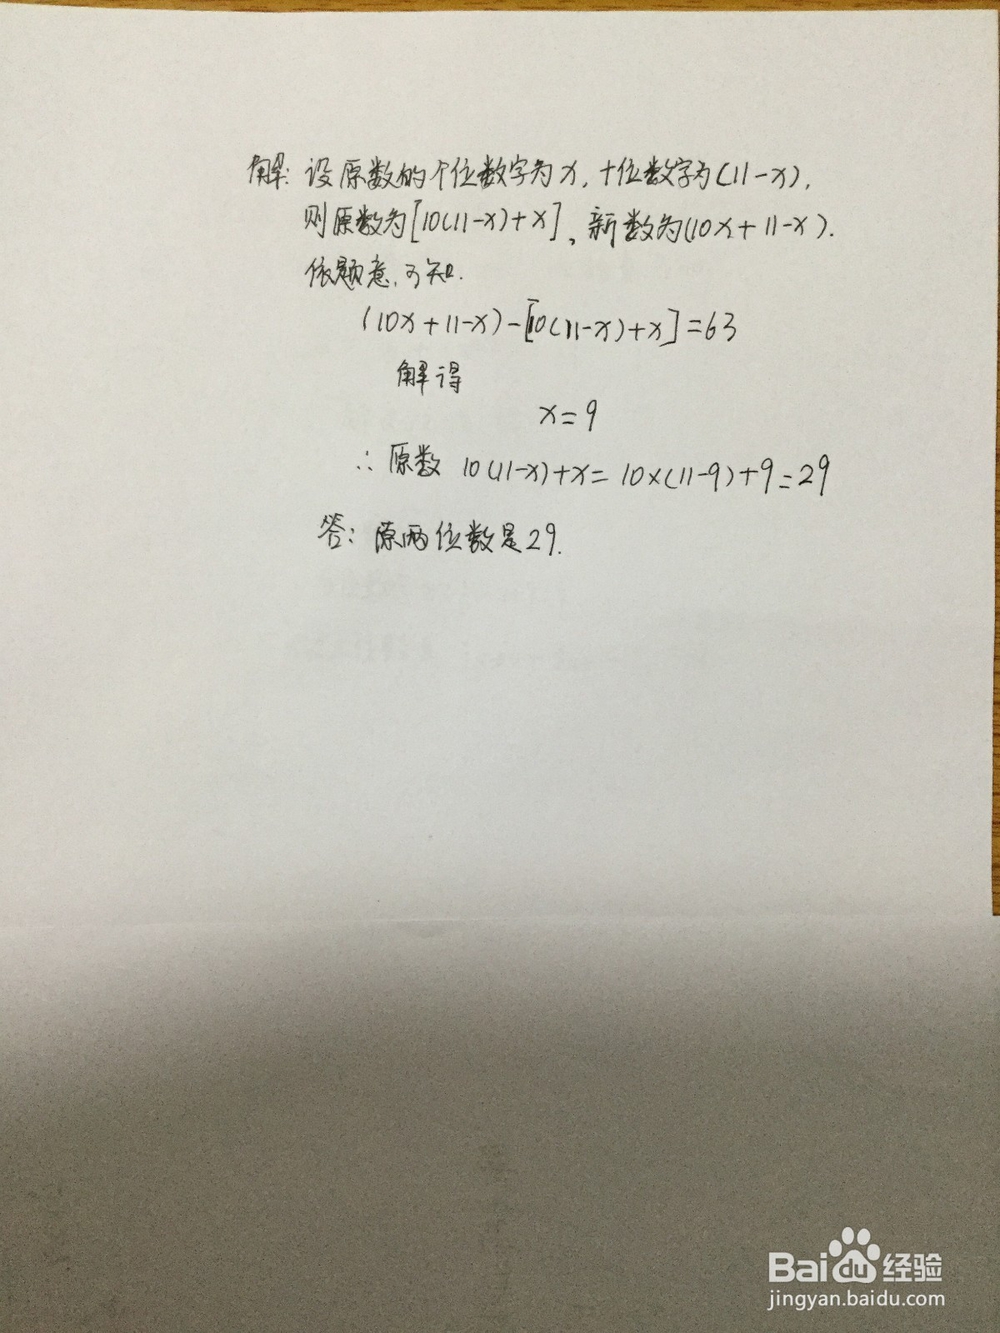 解：设原数的个位数字为x，十位数字为(11-x)，
则原数为[10(11-x)+x]，新数为(10x+11-x).
依题意，可知.
(10x+11-x)-[10(11-x)+x]=63
解得
x=9
∴原数 10(11-x)+x=10×(11-9)+9=29
答：原两位数是29.
Baidu经验
jingyan.baidu.com